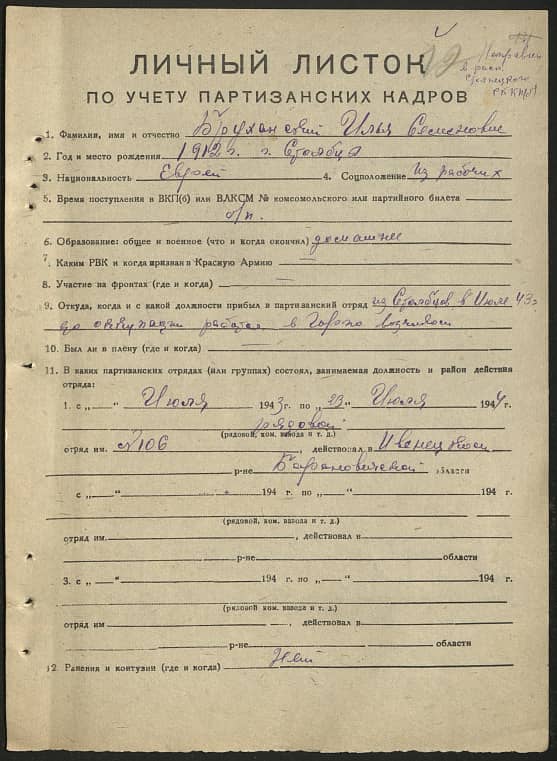 Направлен
в расп.
Столпецкого
РККА
ЛИЧНЫЙ ЛИСТОК
ПО УЧЕТУ ПАРТИЗАНСКИХ КАДРОВ
1. Фамилия, имя и отчество Илья Семенович
2. Год и место рождения 1912 г. г. Столбця
3. Национальность Еврей 4. Соцположение Из рабочих
5. Время поступления в ВКП(б) или ВЛКСМ № комсомольского или партийного билета
б/п.
6. Образование: общее и военное (что и когда окончил) домашнее
7. Каким РВК и когда призван в Красную Армию
8. Участие на фронтах (где и когда)
9. Откуда, когда и с какой должности прибыл в партизанский отряд из Столбцов в Июле 43 г
до оккупации работал в
10. Был ли в плену (где и когда)
11. В каких партизанских отрядах (или группах) состоял, занимаемая должность и район действия
отряда:
1. с „ “ Июля 1943 г. по „23“ Июля 1944 г.
рядовой
(рядовой, ком. взвода и т. д.)
отряд им. №106, действовал в Ивенецком
р-не Барановичской области
с „ “ 194 г. по „ “ 194 г.
(рядовой, ком. взвода и т. д.)
отряд им. , действовал в
р-не области
3. с „ “ 194 г. по „ “ 194 г.
(рядовой, ком. взвода и т. д.)
отряд им , действовал в
р-не области
12. Ранения и контузии (где и когда) Нет